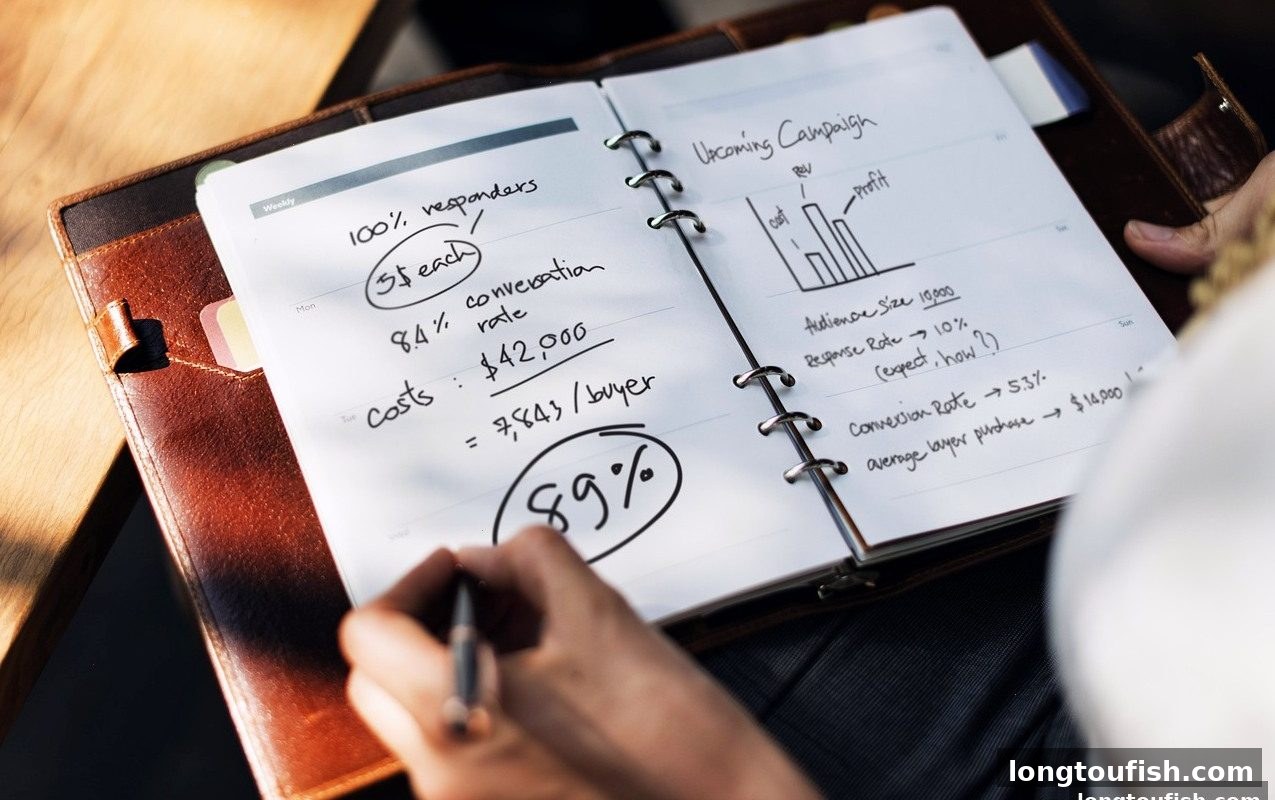 Weekly
100% responders
5$ each
84% conversation
rate
costs : $42,000
= 7,843 /buyer
89%
Mon
Tue
Wed
Upcoming Campaign
Rev
cost
Profit
Audience Size 10,000
Response Rate → 10%
(expect, how?)
Conversion Rate → 53%
average buyer purchase → $14,000
Sun
longtoufish.com
longtoufish.com